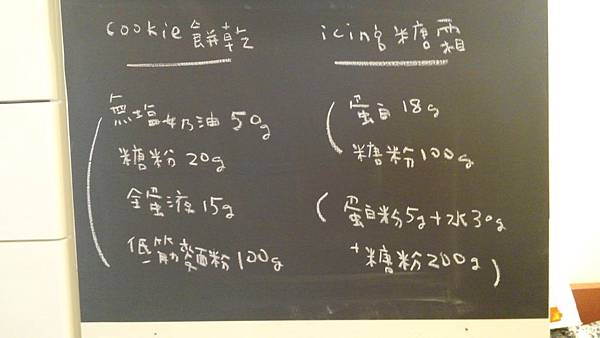 cookie餅乾
無塩奶油50g
糖粉20g
全蛋液15g
低筋麵粉100g
icing糖霜
蛋白18g
糖粉100g
(蛋白粉5g+水30g
+糖粉200g)